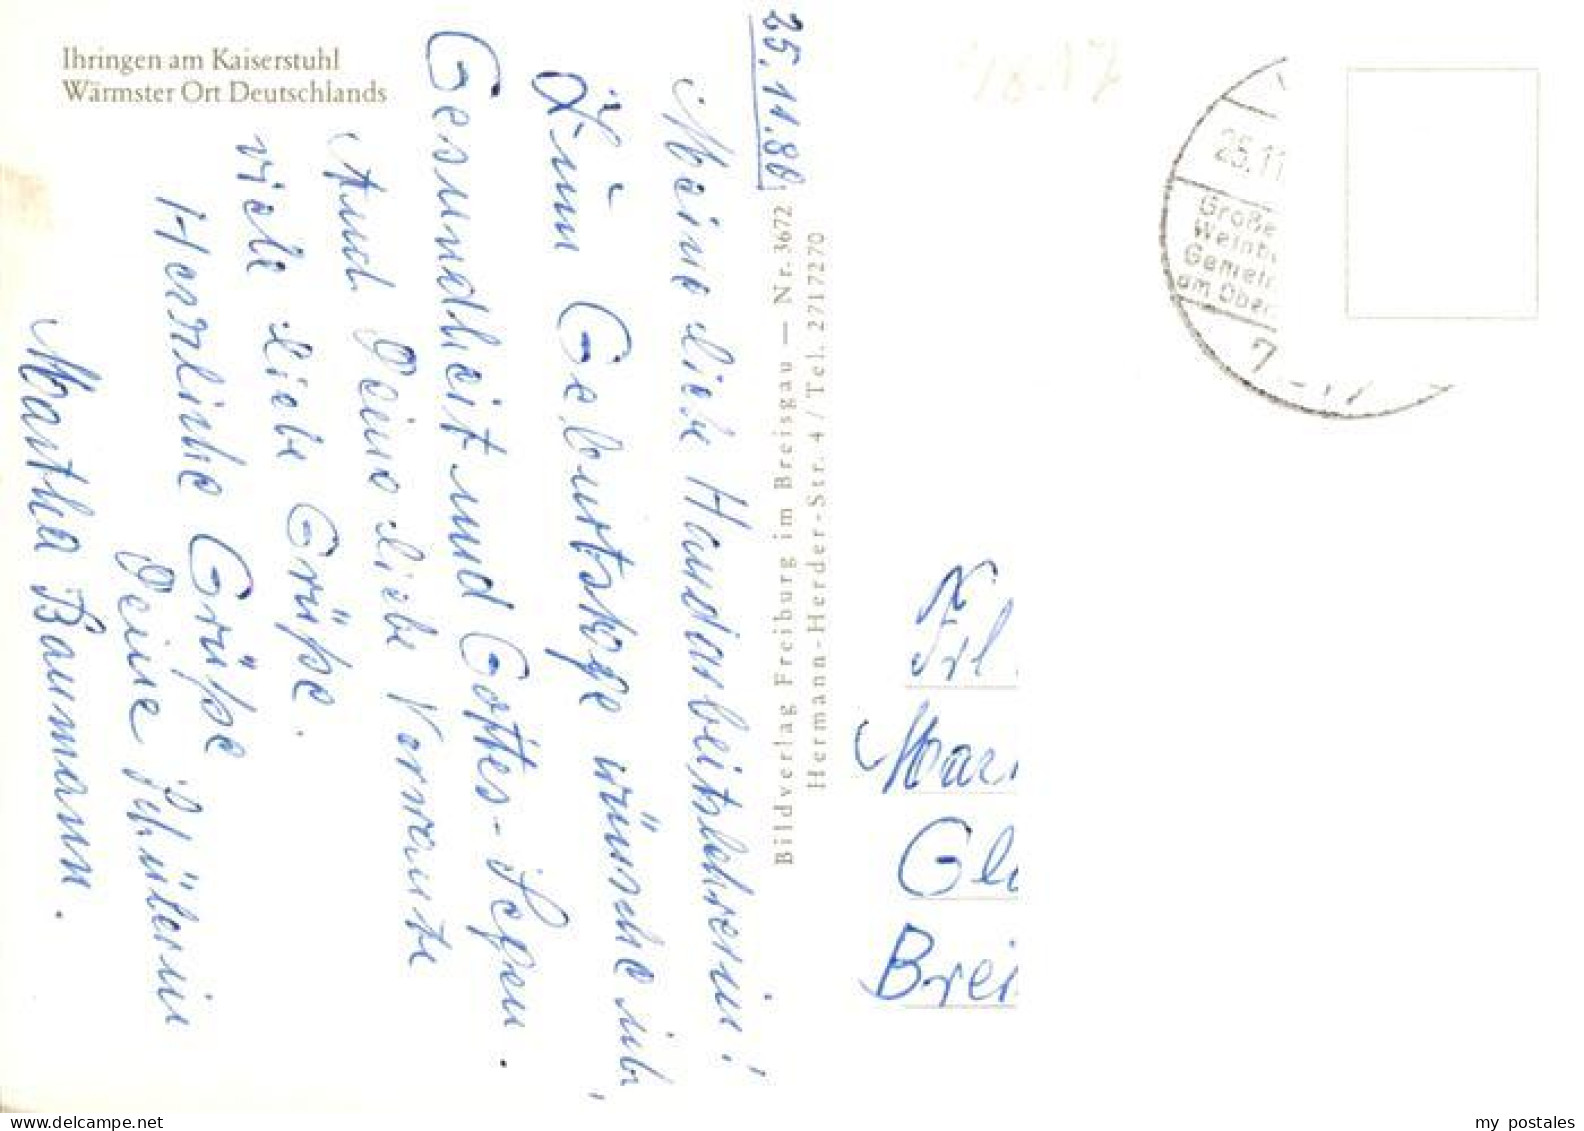 Ihringen am Kaiserstuhl
Wärmster Ort Deutschlands
25.11.80
Meine liebe Handarbeitslehrerin!
Zum Geburtstage wünsche ich,
Gesundheit und Gottes-Segen.
Auch Deine liebe Verwante
viele liebe Grüße.
Herrliche Grüße
Deine Schülerin
Martha Baumann.
Bildverlag Freiburg im Breisgau — Nr. 3672
Hermann-Herder-Str. 4 / Tel. 2717270
25.11
Große
Weinb
Gemein
am Ober
7
Frl.
Mar
Gl
Brei
delcampe.net
my postales